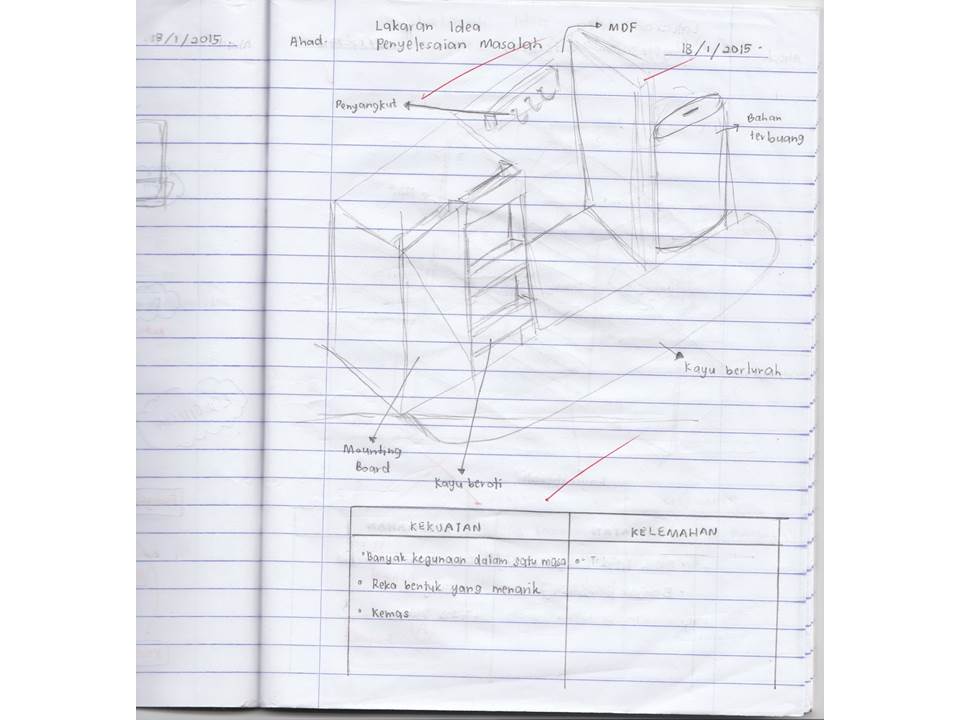 18/1/2015
Lakaran Idea
Ahad.
Penyelesaian Masalah
18/1/2015
MDF
Penyangkut
Bahan
terbuang
Kayu berlurah
Mounting
Board
Kayu beroti
KEKUATAN
KELEMAHAN
• Banyak kegunaan dalam satu masa
• Reka bentuk yang menarik
• Kemas